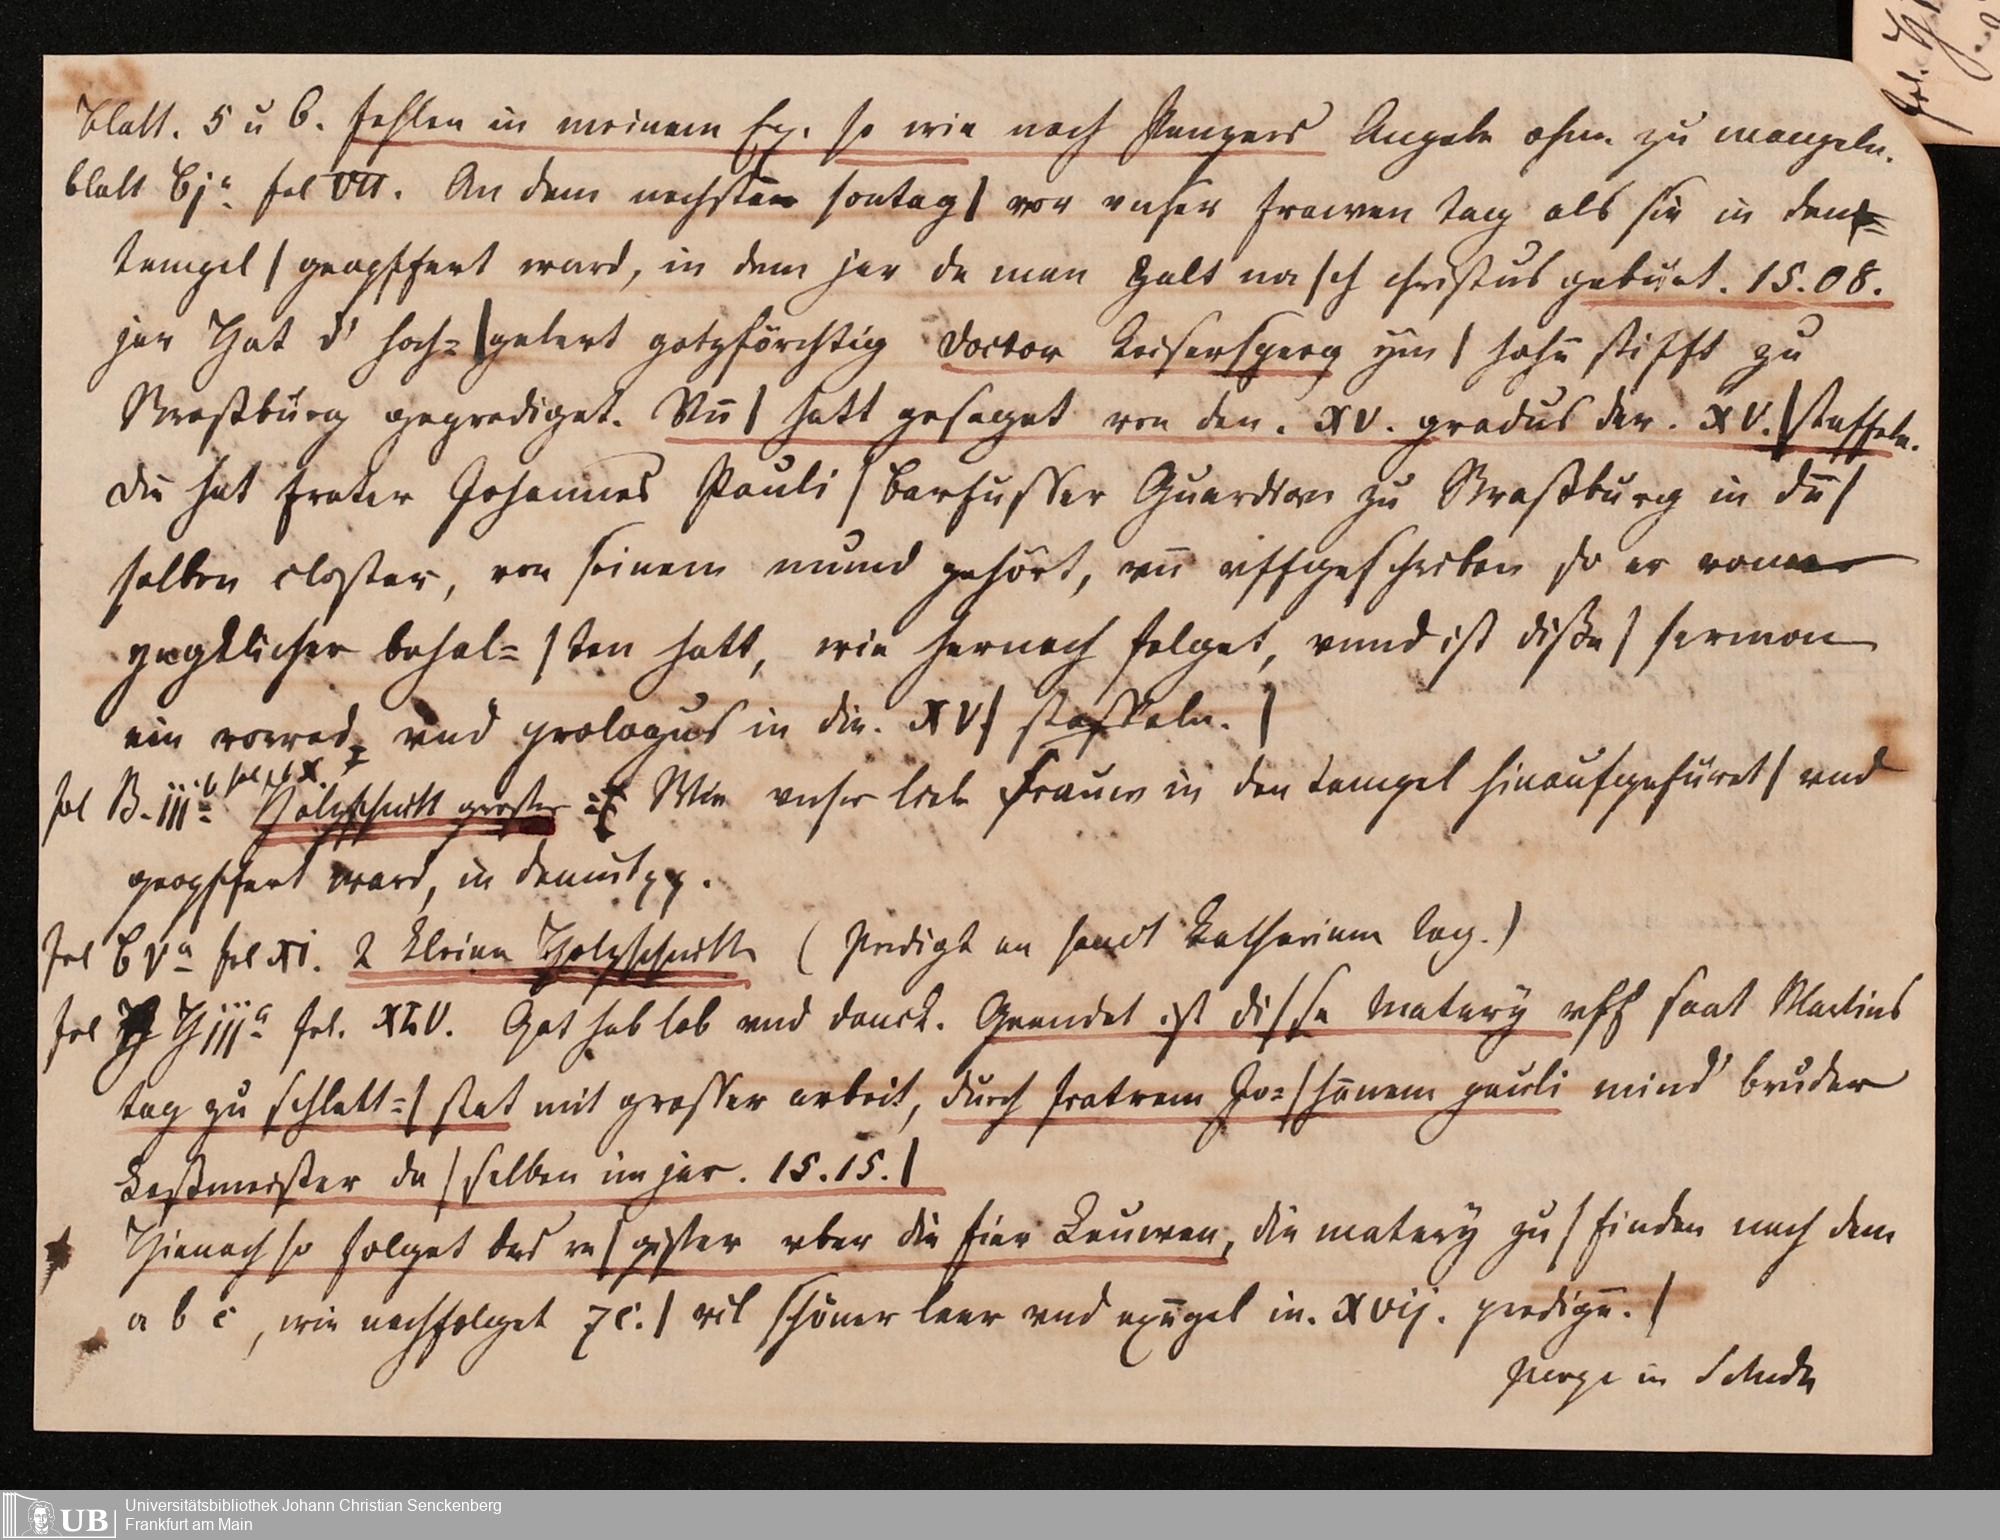 Blatt. 5 u 6. fehlen in meinem Ex. so wie nach Panzers Angabe ohne zu mangeln.
blatt Bjᵃ fol VII. An dem nechsten sontag| vor vnser frawen tag als sie in den
tempel| geopffert ward, in dem jar da man zalt na|ch christus geburt. 15.08.
jar Hat d' hoch=|gelert gotzförchtig doctor keisersperg ym| hohē stifft zu
Straßburg geprediget. Vn̄| hatt gesaget von den. XV. gradus der. XV.|staffeln.
die hat frater Johannes Pauli| barfusser Guardian zu Straßburg in dē|
selben closter, von seinem mund gehört, vn̄ vffgeschriben so er
yngklicher behal=|ten hatt, wie hernach folget, vnnd ist diße| sermon
ein vorred, vnd prologus in die. XV| staffeln.|
fol B.iijᵇ fol X. Holzschnitt grosser Wie vnser liebe frauw in den tempel hinaufgefüret| vnd
geopffert ward, in demut pp.
fol B vᵃ fol XI. 2 kleine Holzschnitte (Predigt an sanct Katharinen tag.)
fol H iijᵃ fol. XLV. Got hab lob vnd danck. Geendet ist di|se matery vff sant Martins
tag zu schlett=|stat mit grosser arbeit, durch fratrem Jo=|hānem pauli mind' bruder
Leßmeister da|selben im jar. 15.15.|
Hienach so folget das re|gister vber die fier Leuwen, die matery zu| finden nach dem
a b c, wie nachfolget ⁊c.| vil schöner leer vnd in. xvij. predigē.|